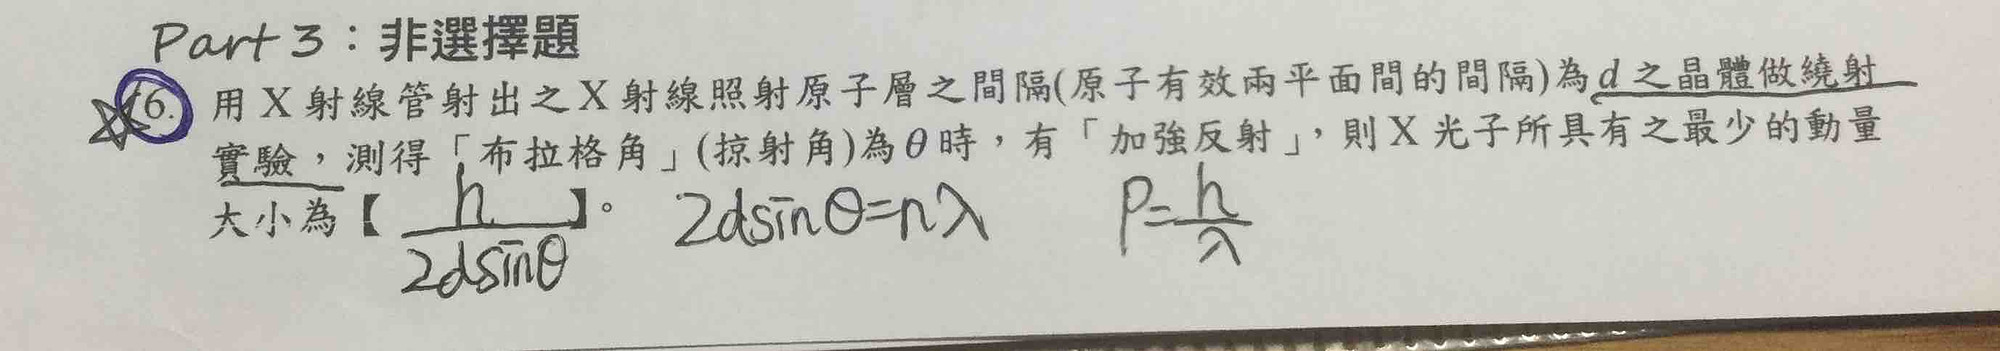 Part 3：非選擇題
16. 用 X 射線管射出之 X 射線照射原子層之間隔(原子有效兩平面間的間隔)為 d 之晶體做繞射
實驗，測得「布拉格角」(掠射角)為 θ 時，有「加強反射」，則 X 光子所具有之最少的動量
大小為【 h/2dsinθ 】。 2dsinθ=nλ P=h/λ